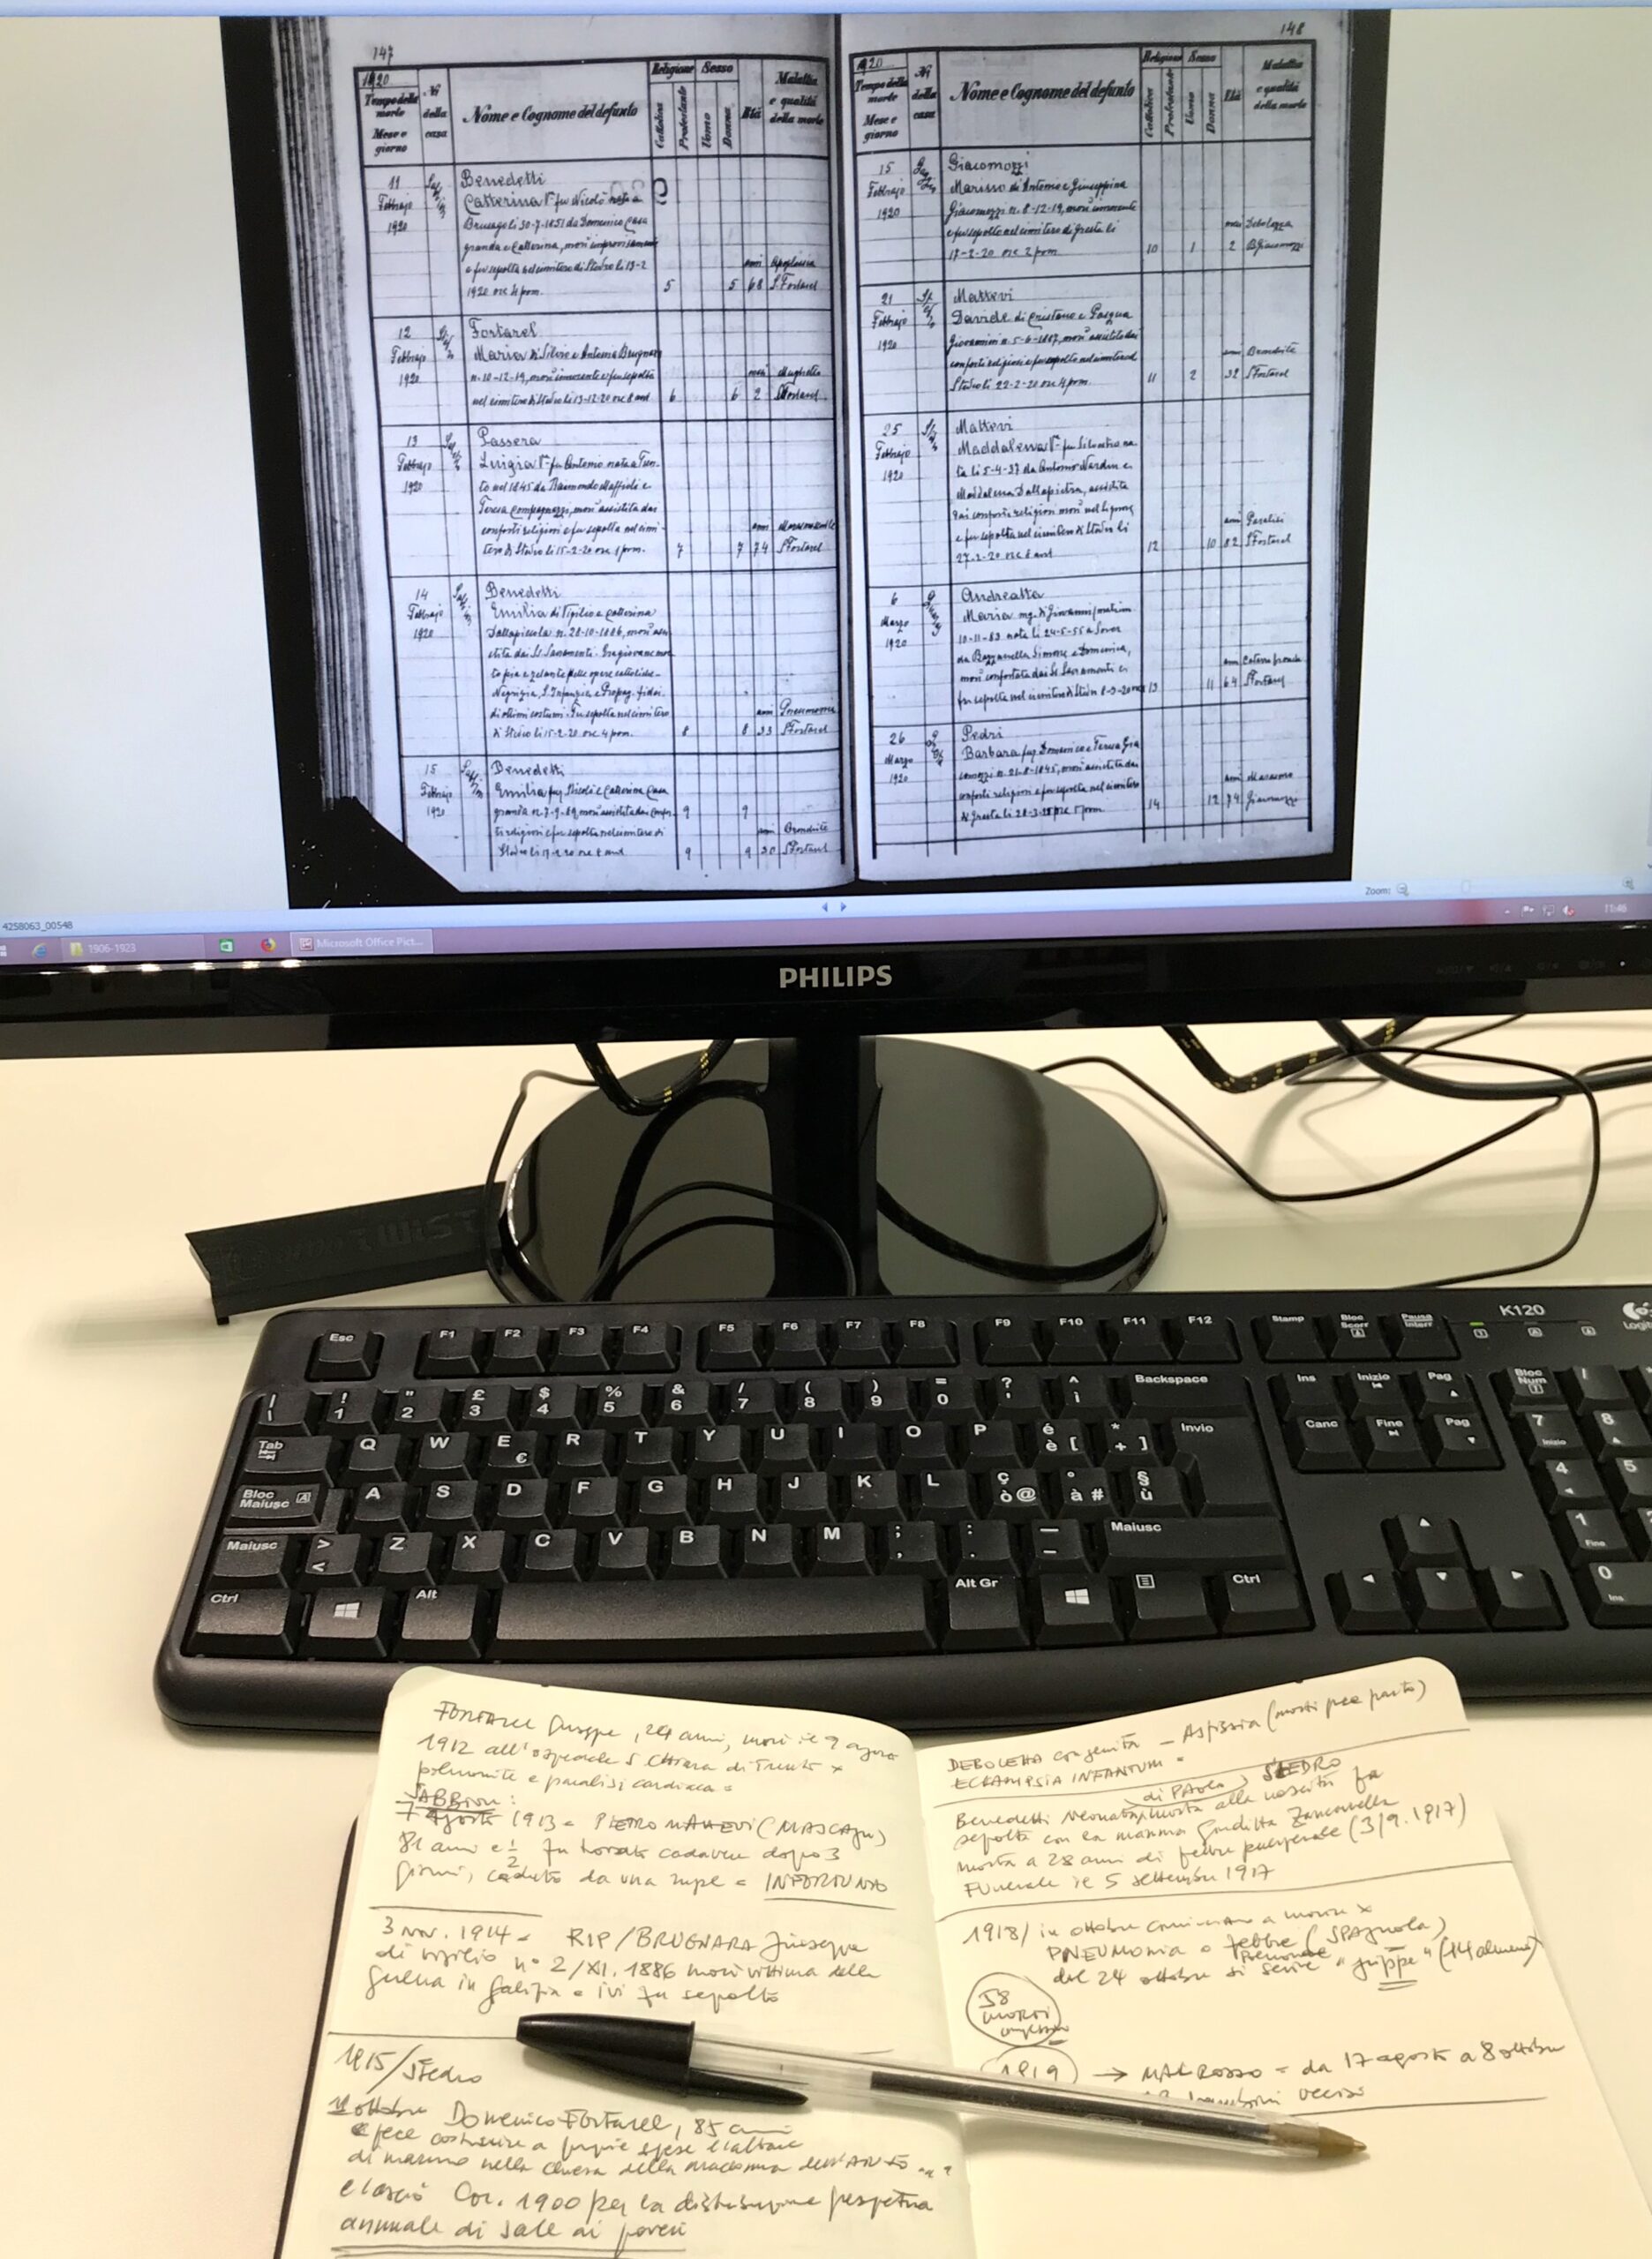 147
1920
Tempo della morte
Mese e giorno
Nº della casa
Nome e Cognome del defunto
Religione
Cattolica
Protestante
Sesso
Uomo
Donna
Età
Malattia e qualità della morte
11
Febbrajo
1920
Benedetti
Catterina Vª fu Nicolò nata a
Brusago li 30-7-1851 da Domenico Casa
granda e Catterina, morì improvvisamente
e fu sepolta nel cimitero di Stedro li 13-2
1920 ore 4 pom.
5
5
68
anni Apoplessia
S. Fortarel
12
Febbrajo
1920
Fortarel
Maria di Silvio e Antonia Brugnara
n. 10-12-19, morì innocente e fu sepolta
nel cimitero di Stedro li 13-12-20 ore 8 ant
6
6
2
mesi
SFortarel
13
Febbrajo
1920
Passera
Luigia Vª fu Antonio nata a Tren-
to nel 1845 da Raimondo Maffioli e
Teresa Compagnazzi, morì assistita dai
conforti religiosi e fu sepolta nel cimi-
tero di Stedro li 15-2-20 ore 1 pom.
7
7
74
anni
SFortarel
14
Febbrajo
1920
Benedetti
Emilia di Vigilio e Catterina
Dallapiccola n. 28-10-1886, morì assi-
stita dai SS. Sacramenti. Era giovane mol
to pia e zelante delle opere cattoliche-
S. Infanzia e Propag. fidei
di ottimi costumi. Fu sepolta nel cimitero
di Stedro li 15-2-20 ore 4 pom.
8
8
33
anni Pneumonia
SFortarel
15
Febbrajo
1920
Benedetti
Emilia fu Nicolò e Catterina Casa
granda n. 7-9-89, morì assistita dai confor-
ti religiosi e fu sepolta nel cimitero di
Stedro li 17-2-20 ore 8 ant
9
9
9
9
30
anni Bronchite
SFortarel
148
1920
Tempo della morte
Mese e giorno
Nº della casa
Nome e Cognome del defunto
Religione
Cattolica
Protestante
Sesso
Uomo
Donna
Età
Malattia e qualità della morte
15
Febbrajo
1920
Giacomozzi
Marino di Antonio e Giuseppina
Giacomozzi n. 8-12-19, morì innocente
e fu sepolto nel cimitero di Gresta li
17-2-20 ore 2 pom.
10
1
2
mesi Debolezza
Giacomozzi
21
Febbrajo
1920
Mattevi
Davide di Cristano e Pasqua
Giovannini n. 5-6-1887, morì assistito dai
conforti religiosi e fu sepolto nel cimitero di
Stedro li 22-2-20 ore 4 pom.
11
2
32
anni Bronchite
SFortarel
25
Febbrajo
1920
Mattevi
Maddalena Vª fu Silvestro na-
ta li 5-4-37 da Antonio Nardin e
Maddalena Dallapietra, assistita
dai conforti religiosi morì nel Signore
e fu sepolta nel cimitero di Stedro li
27-2-20 ore 8 ant
12
10
82
anni Paralisi
SFortarel
6
Marzo
1920
Andreatta
Maria mg. di Giovanni
10-11-83 nata li 24-5-55 a Sover
da Bazzanella Simone e Domenica,
morì confortata dai SS Sacramenti e
fu sepolta nel cimitero di Stedro 8-3-20
13
11
64
anni
SFortarel
26
Marzo
1920
Pedri
Barbara fu Domenico e Teresa Gia
comozzi n. 21-8-1845, morì assistita dai
conforti religiosi e fu sepolta nel cimitero
di Gresta li 28-3-20 ore 1 pom.
14
12
74
anni Marasmo
Giacomozzi
4258063_00548
Zoom:
1906-1923
Microsoft Office Pict...
11:46
PHILIPS
TWIST
K120
Logitech
Esc F1 F2 F3 F4 F5 F6 F7 F8 F9 F10 F11 F12 Stamp Bloc Scorr Pausa Interr
| \ ! 1 " 2 £ 3 $ 4 % 5 & 6 / 7 ( 8 ) 9 = 0 ? ' ^ ì Backspace Ins Inizio Pag Bloc Num /
Tab Q W E € R T Y U I O P é è [ * + ] Invio Canc Fine Pag 7 Inizio 8
Bloc Maiusc A S D F G H J K L ç ò @ ° à # § ù 4 5
Maiusc > < Z X C V B N M ; , : . _ - Maiusc 1 Fine
Ctrl Alt Alt Gr Ctrl 0 Ins
FORTAREL Giuseppe, 24 anni, morì il 9 agosto
1912 all'ospedale S Chiara di Trento x
polmonite e paralisi cardiaca =
SABBION:
7 Agosto 1913 = PIETRO MATTEVI (MASCAJU)
81 anni e 1/2 fu trovato cadavere dopo 3
giorni, caduto da una rupe = INFORTUNIO
3 nov. 1914 = RIP/BRUGNARA Giuseppe
di Vigilio nº 2/XI. 1886 morì vittima della
guerra in Galizia e ivi fu sepolto
1915/Stedro
ottobre Domenico FORTAREL, 85 anni
fece costruire a proprie spese l'altare
di marmo nella chiesa della Madonna dell'AIUTO
e lasciò Cor. 1900 per la distribuzione perpetua
annuale di sale ai poveri
DEBOLEZZA congenita - Asfissia (morti per parto)
ECLAMPSIA INFANTUM =
di PAolo) STEDRO
Benedetti Neonata, morta alla nascita fu
sepolta con la mamma Giuditta Zancanella
morta a 28 anni di febbre puerperale (3/9.1917)
Funerale il 5 settembre 1917
1918/ in ottobre cominciano a morire x
PNEUMONIA o febbre (SPAgnola)
dal 24 ottobre si scrive "grippe" (14 almeno)
58
morti
1919 → MAL ROSSO = da 17 agosto a 8 ottobre
bambini uccisi